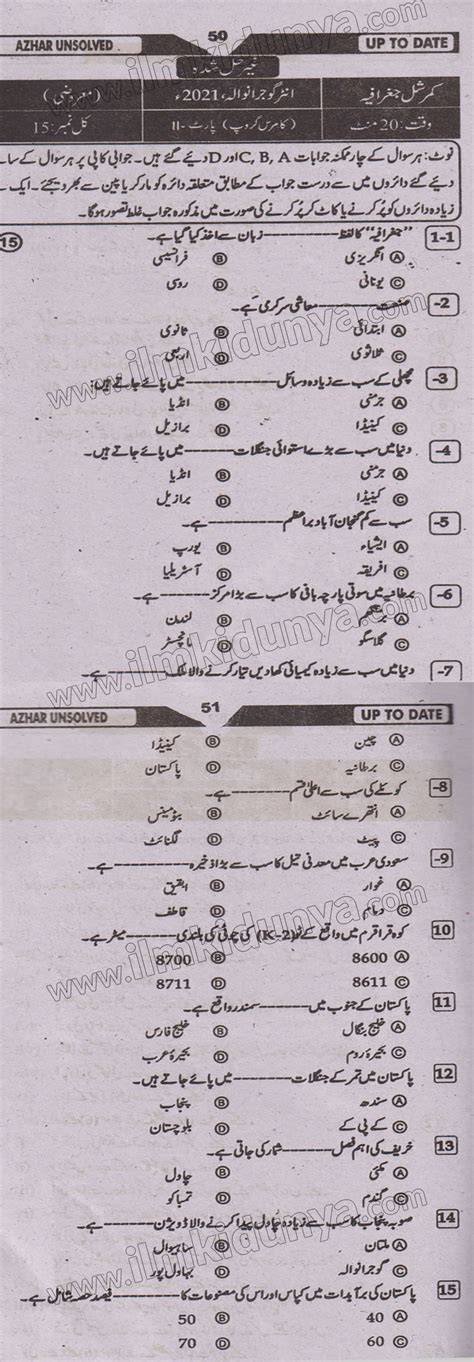 AZHAR UNSOLVED 50 UP TO DATE
غیر حل شدہ
کمرشل جغرافیہ انٹر گوجرانوالہ، 2021ء (معروضی)
وقت: 20 منٹ (کامرس گروپ) پارٹ-II کل نمبر: 15
نوٹ: ہر سوال کے چار ممکنہ جوابات A، B، C اور D دیئے گئے ہیں۔ جوابی کاپی پر ہر سوال کے سامنے
دیئے گئے دائروں میں سے درست جواب کے مطابق متعلقہ دائرہ کو مارکر یا پین سے بھر دیجئے۔ ایک سے
زیادہ دائروں کو پُر کرنے یا کاٹ کر پُر کرنے کی صورت میں مذکورہ جواب غلط تصور ہوگا۔
1-1 "جغرافیہ" کا لفظ -------- زبان سے اخذ کیا گیا ہے۔ 15
A انگریزی B فرانسیسی
C یونانی D روسی
-2 صنعت -------- معاشی سرگرمی ہے۔
A ابتدائی B ثانوی
C ثلاثوی D اربعی
-3 مچھلی کے سب سے زیادہ وسائل -------- میں پائے جاتے ہیں:
A جرمنی B انڈیا
C کینیڈا D برازیل
-4 دنیا میں سب سے بڑے استوائی جنگلات -------- میں پائے جاتے ہیں۔
A جرمنی B انڈیا
C کینیڈا D برازیل
-5 سب سے کم گنجان آباد براعظم -------- ہے۔
A ایشیاء B یورپ
C افریقہ D آسٹریلیا
-6 برطانیہ میں سوتی پارچہ بافی کا سب سے بڑا مرکز -------- ہے۔
A برمنگھم B لندن
C گلاسگو D مانچسٹر
-7 دنیا میں سب سے زیادہ کیمیائی کھادیں تیار کرنے والا ملک -------- ہے۔
AZHAR UNSOLVED 51 UP TO DATE
A چین B کینیڈا
C برطانیہ D پاکستان
-8 کوئلے کی سب سے اعلیٰ قسم -------- ہے۔
A انتھرے سائٹ B بٹومینس
C پیٹ D لگنائٹ
-9 سعودی عرب میں معدنی تیل کا سب سے بڑا ذخیرہ -------- ہے۔
A غوار B ابقیق
C دمام D قاطف
10 کوہ قراقرم میں واقع کے ٹو (K-2) کی چوٹی کی بلندی -------- میٹر ہے۔
A 8600 B 8700
C 8611 D 8711
11 پاکستان کے جنوب میں -------- سمندر واقع ہے۔
A خلیج بنگال B خلیج فارس
C بحیرہ روم D بحیرہ عرب
12 پاکستان میں تمر کے جنگلات -------- میں پائے جاتے ہیں۔
A سندھ B پنجاب
C کے پی کے D بلوچستان
13 خریف کی اہم فصل -------- شمار کی جاتی ہے۔
A مکئی B چاول
C گندم D تمباکو
14 صوبہ پنجاب کا سب سے زیادہ چاول پیدا کرنے والا ڈویژن -------- ہے۔
A ملتان B ساہیوال
C گوجرانوالہ D بہاول پور
15 پاکستان کی برآمدات میں کپاس اور اس کی مصنوعات کا -------- فیصد حصہ شامل ہے۔
A 40 B 50
C 60 D 70
www.ilmkidunya.com